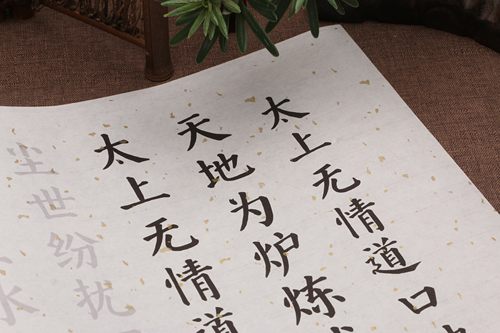 太上无情道口
天地为炉炼
太上无情道
尘世纷扰